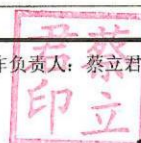 作负责人：蔡立君
蔡立
君印